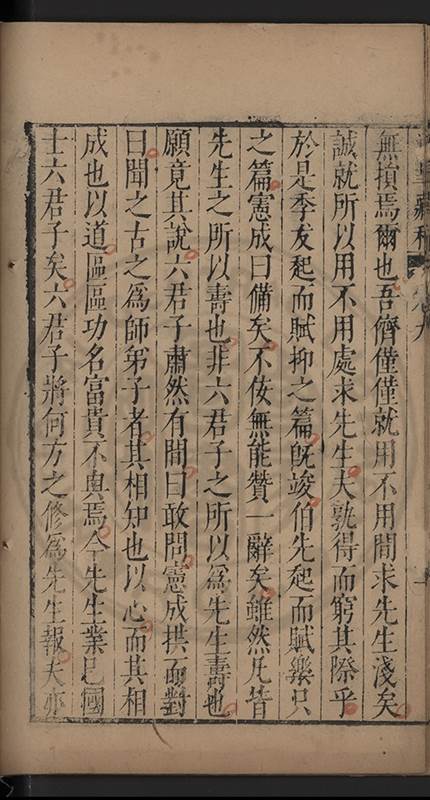 無損焉爾也吾儕僅僅就用不用間求先生淺矣
誠就所以用不用處求先生夫孰得而窮其際乎
於是季友起而賦抑之篇旣竣伯先起而賦樂只
之篇憲成曰備矣不佞無能贊一辭矣雖然凡皆
先生之所以壽也非六君子之所以爲先生壽也
願竟其說六君子肅然有間曰敢問憲成拱而對
曰聞之古之爲師弟子者其相知也以心而其相
成也以道區區功名富貴不與焉今先生業已國
士六君子矣六君子將何方之修爲先生報夫亦